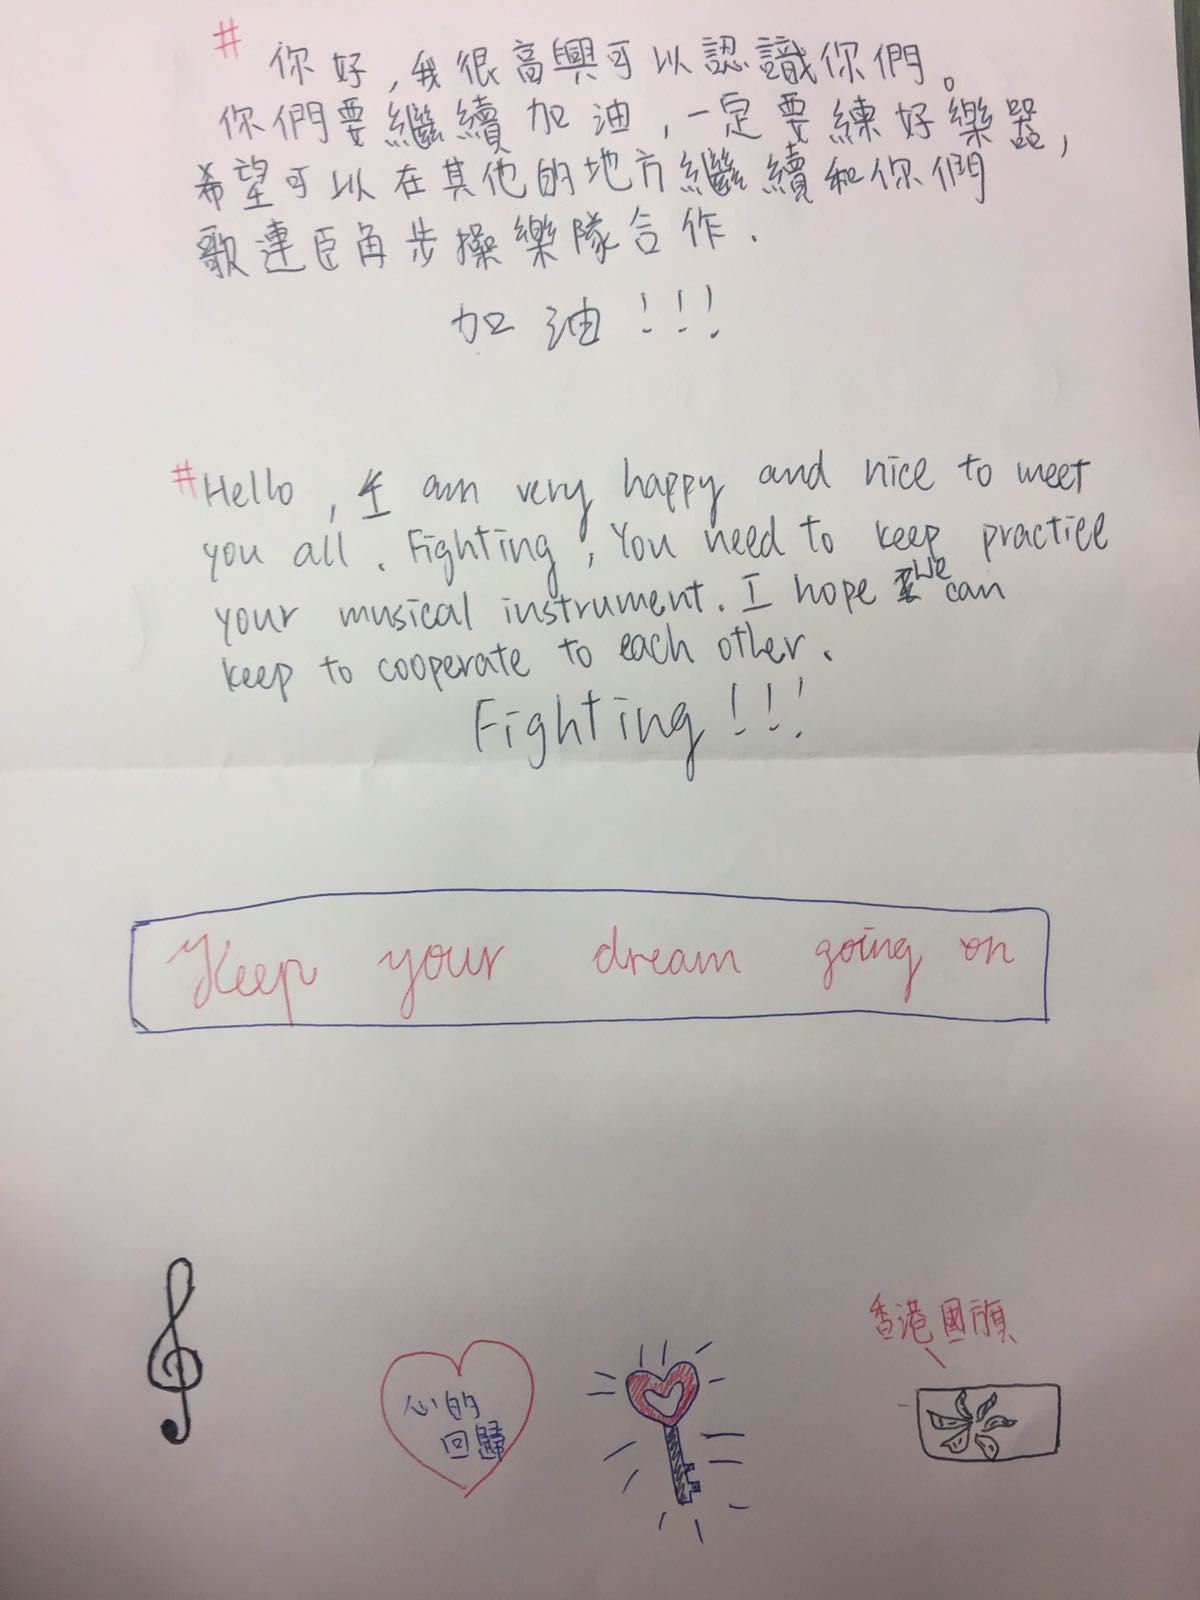 # 你好，我很高興可以認識你們。
你們要繼續加油，一定要練好樂器，
希望可以在其他的地方繼續和你們
歌連臣角步操樂隊合作．
加油！！！
# Hello, I am very happy and nice to meet
you all. Fighting, You need to keep practice
your musical instrument. I hope we can
keep to cooperate to each other.
Fighting!!!
Keep your dream going on
心的
回歸
香港國旗